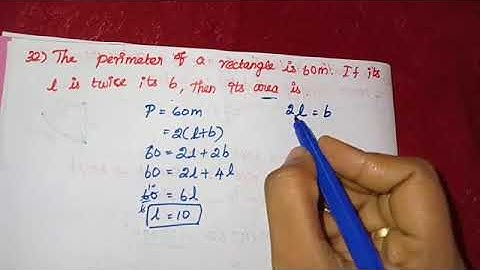 32) The perimeter of a rectangle is 60m. If its
l is twice its b, then its area is.
P = 60m
2l = b
= 2(l+b)
60 = 2l + 2b
60 = 2l + 4l
10
60 = 6l
6
l = 10